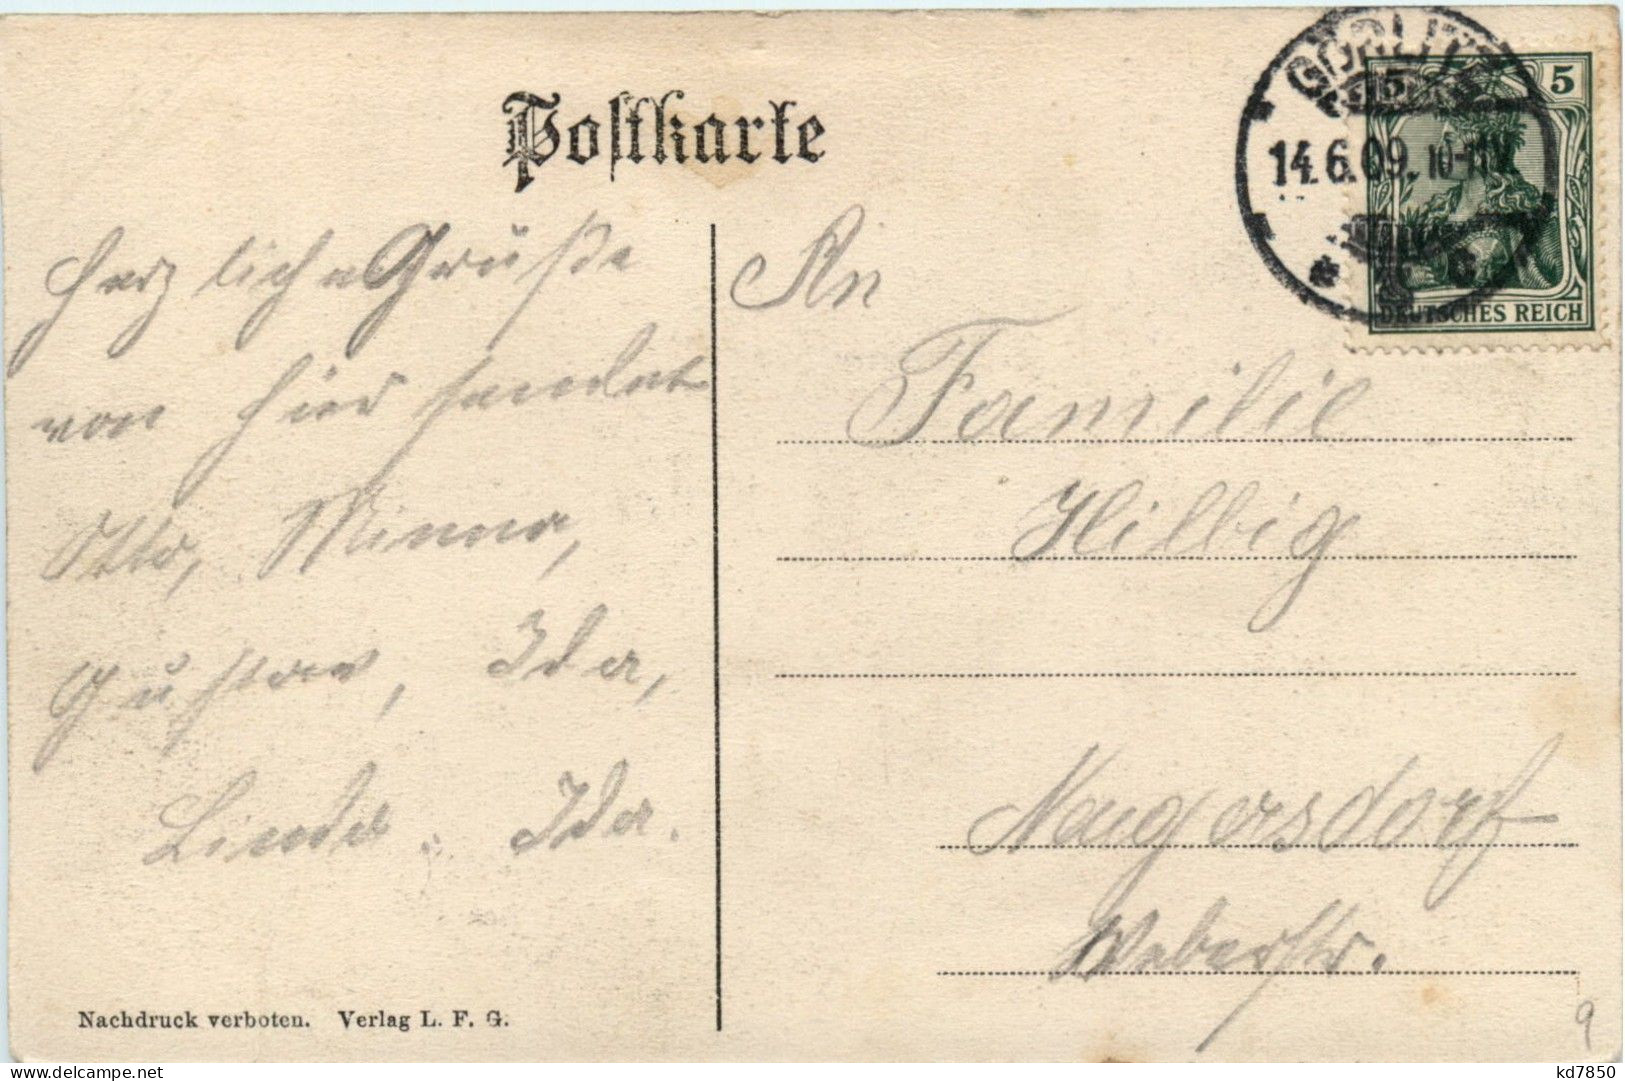 Postkarte
GÖRLITZ
14.6.09. 10-11V.
5 5
DEUTSCHES REICH
Herzliche Grüße
von hier sendet
Otto, Minna,
Gustav, Ida,
Linda. Ida.
An
Familie
Hilbig
Naygersdorf
Weberstr.
Nachdruck verboten. Verlag L. F. G.
9
kd7850